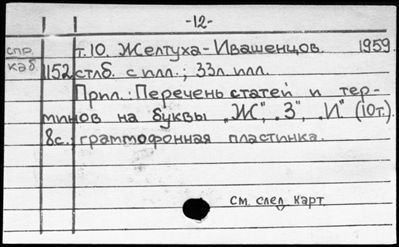 -12-
спр. т.10. Желтуха-Ивашенцов. 1959.
каб. 1152 стлб. с илл.; 33л. илл.
Прил.: Перечень статей и тер-
минов на буквы „Ж", „З", „И" (10т.).
8с.; граммофонная пластинка.
См. след. карт.